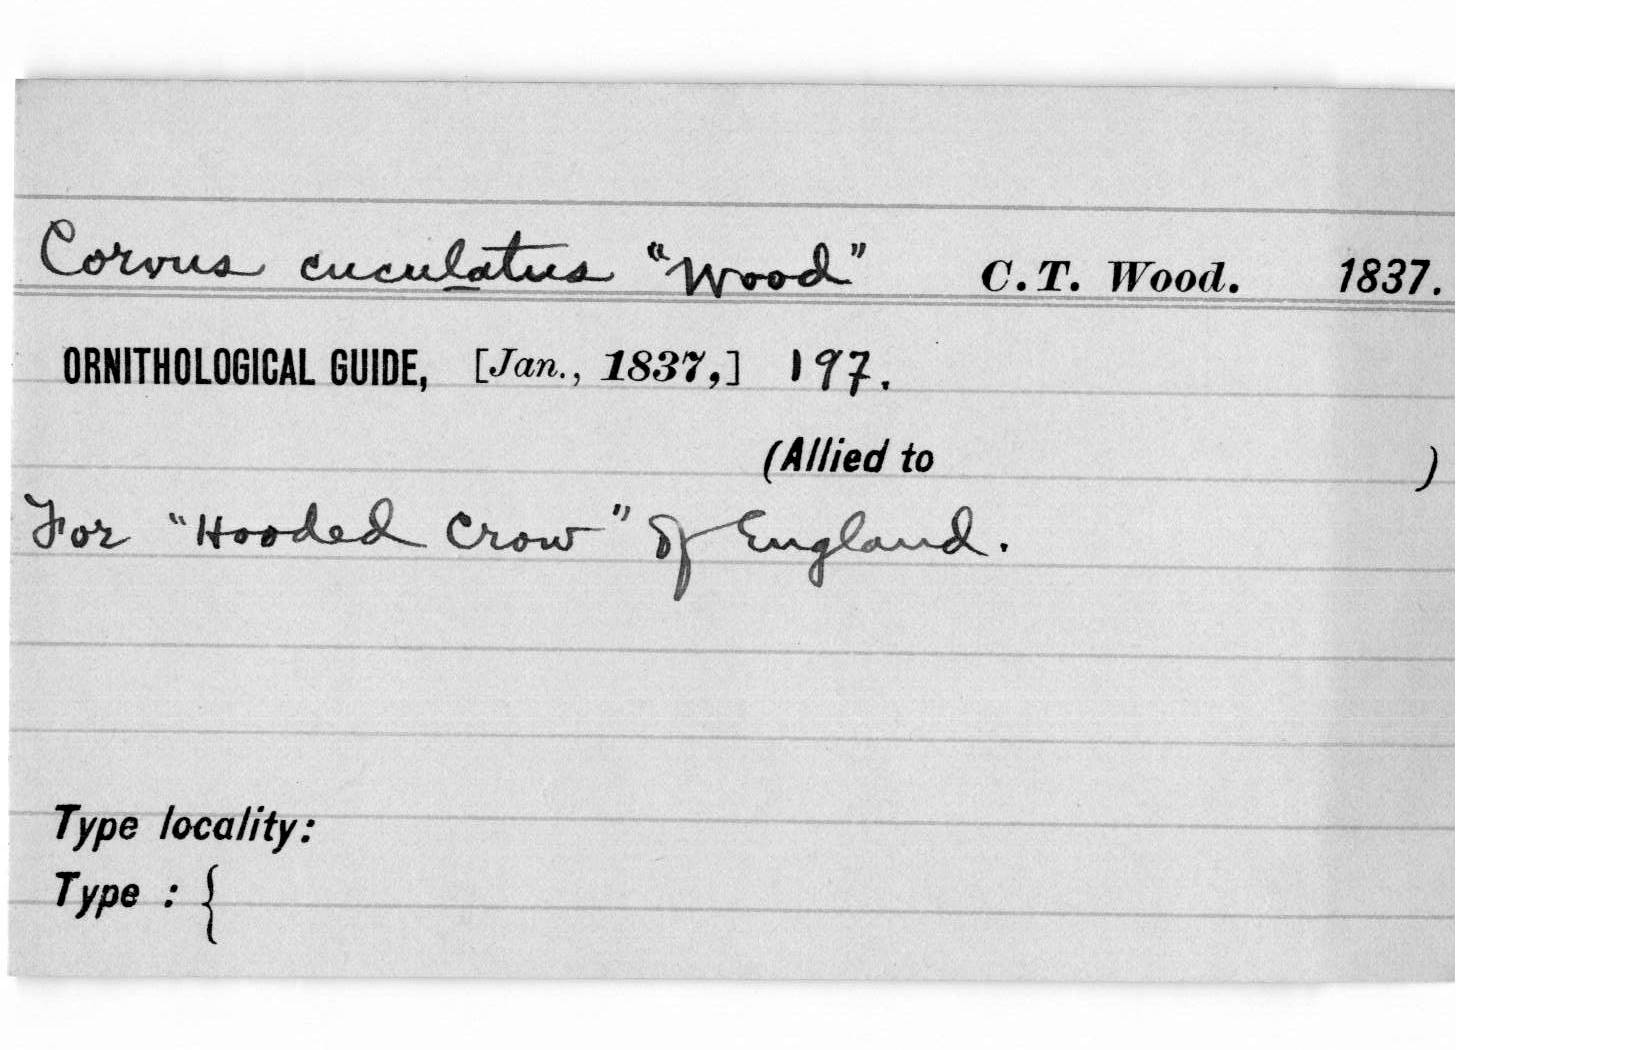 Corvus cuculatus "Wood" C.T. Wood. 1837.
ORNITHOLOGICAL GUIDE, [Jan., 1837,] 197.
(Allied to )
For "Hooded Crow" of England.
Type locality:
Type : {